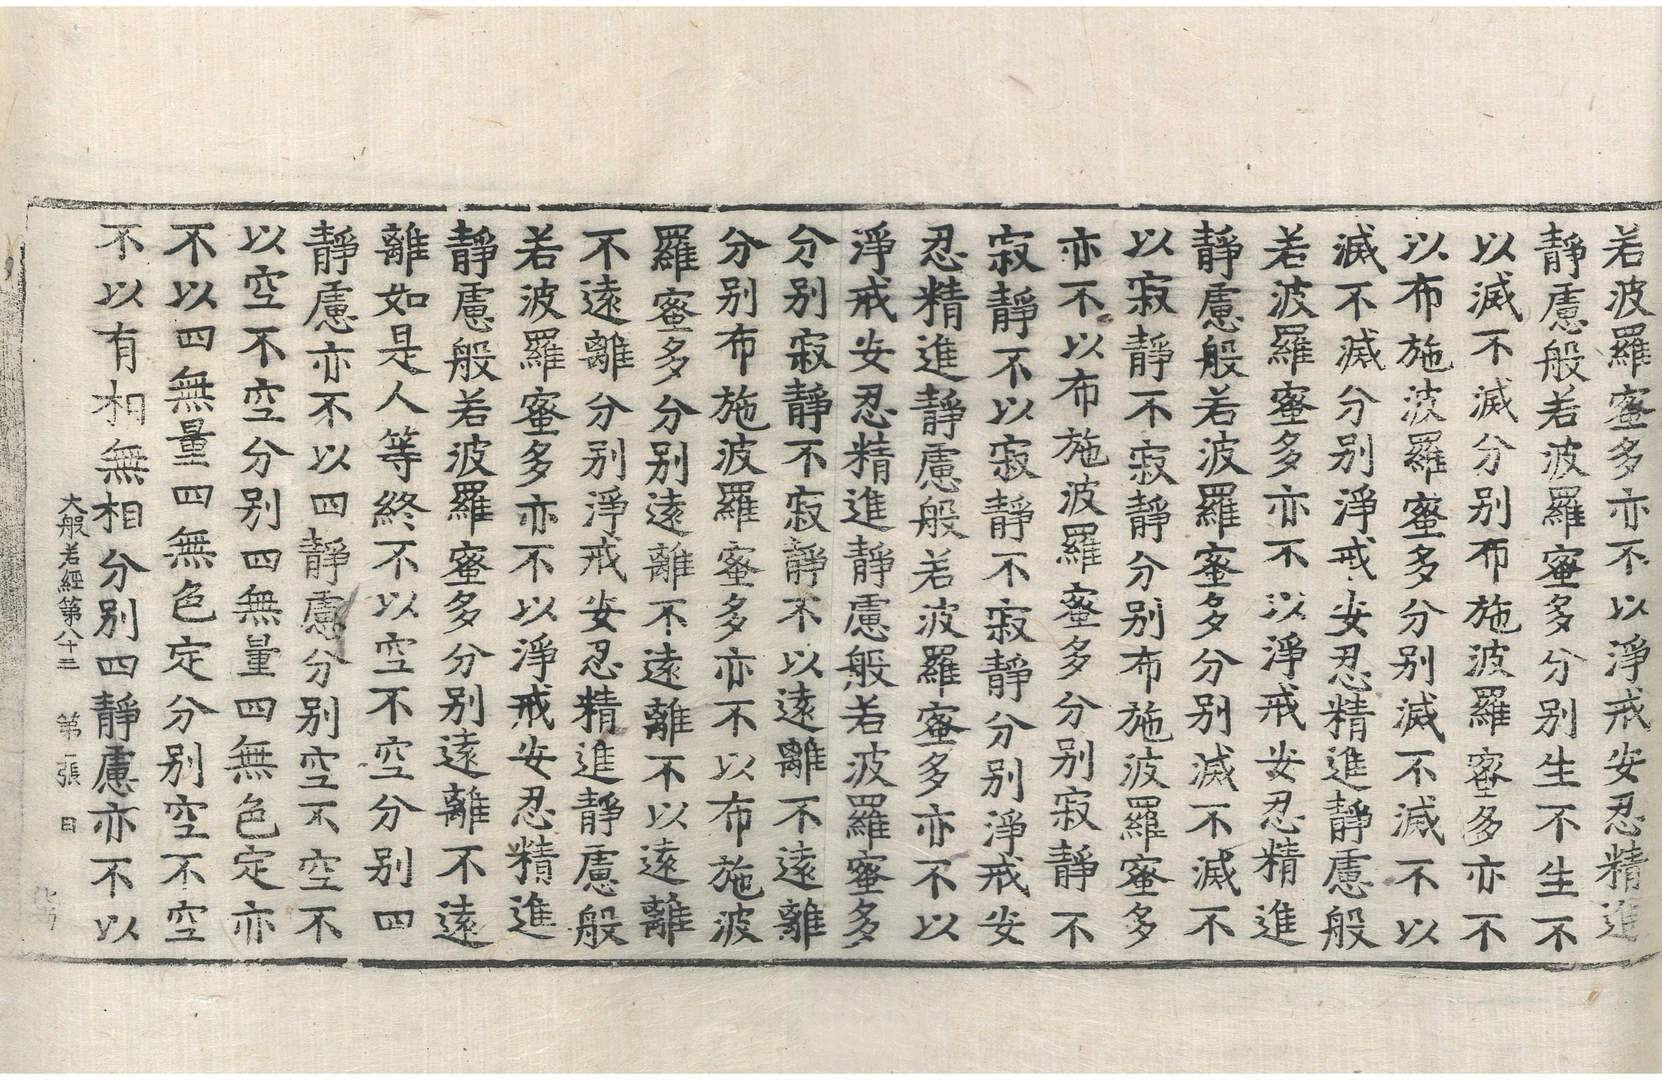 若波羅蜜多亦不以淨戒安忍精進
靜慮般若波羅蜜多分別生不生不
以滅不滅分別布施波羅蜜多亦不
以布施波羅蜜多分別滅不滅不以
滅不滅分別淨戒安忍精進靜慮般
若波羅蜜多亦不以淨戒安忍精進
靜慮般若波羅蜜多分別滅不滅不
以寂靜不寂靜分別布施波羅蜜多
亦不以布施波羅蜜多分別寂靜不
寂靜不以寂靜不寂靜分別淨戒安
忍精進靜慮般若波羅蜜多亦不以
淨戒安忍精進靜慮般若波羅蜜多
分別寂靜不寂靜不以遠離不遠離
分別布施波羅蜜多亦不以布施波
羅蜜多分別遠離不遠離不以遠離
不遠離分別淨戒安忍精進靜慮般
若波羅蜜多亦不以淨戒安忍精進
靜慮般若波羅蜜多分別遠離不遠
離如是人等終不以空不空分別四
靜慮亦不以四靜慮分別空不空不
以空不空分別四無量四無色定亦
不以四無量四無色定分別空不空
不以有相無相分別四靜慮亦不以
大般若經第八十二 第二張 日